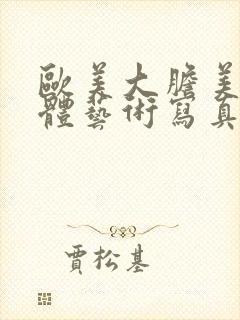 歐美大膽美
體藝術寫真
賈松基